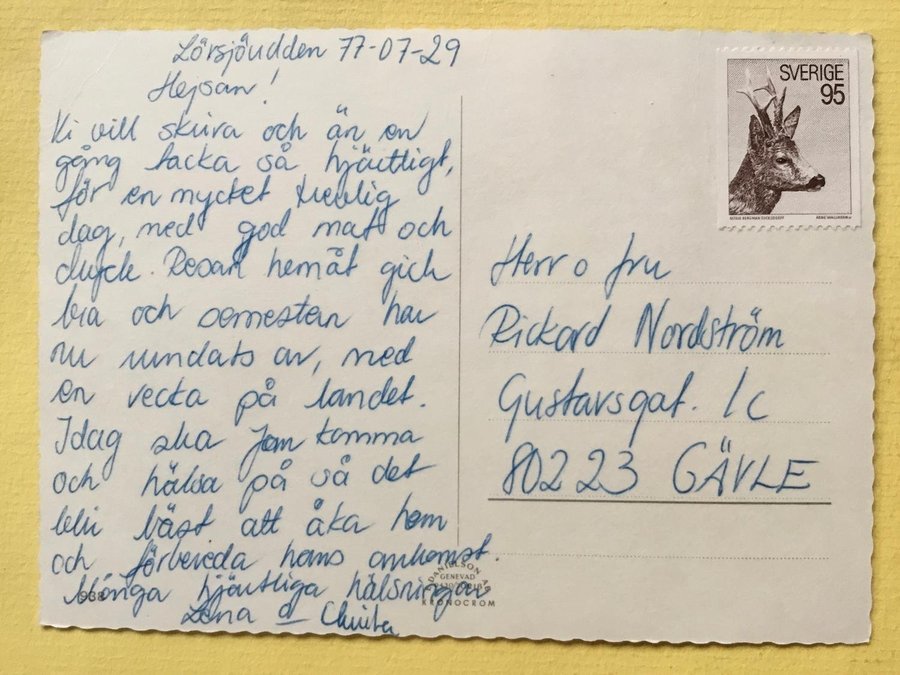 Lörsjöudden 77-07-29
Hejsan!
Vi vill skriva och än en
gång tacka så hjärtligt,
för en mycket trevlig
dag, med god mat och
dryck. Resan hemåt gick
bra och semestern har
nu rundats av, med
en vecka på landet.
Idag ska Jon komma
och hälsa på så det
blir bäst att åka hem
och förbereda hans ankomst.
Många hjärtliga hälsningar
Lena o
SVERIGE
95
Herr o fru
Rickard Nordström
Gustavsgat. 1c
80223 GÄVLE
938
DANIELSON
GENEVAD
KRONOCROM